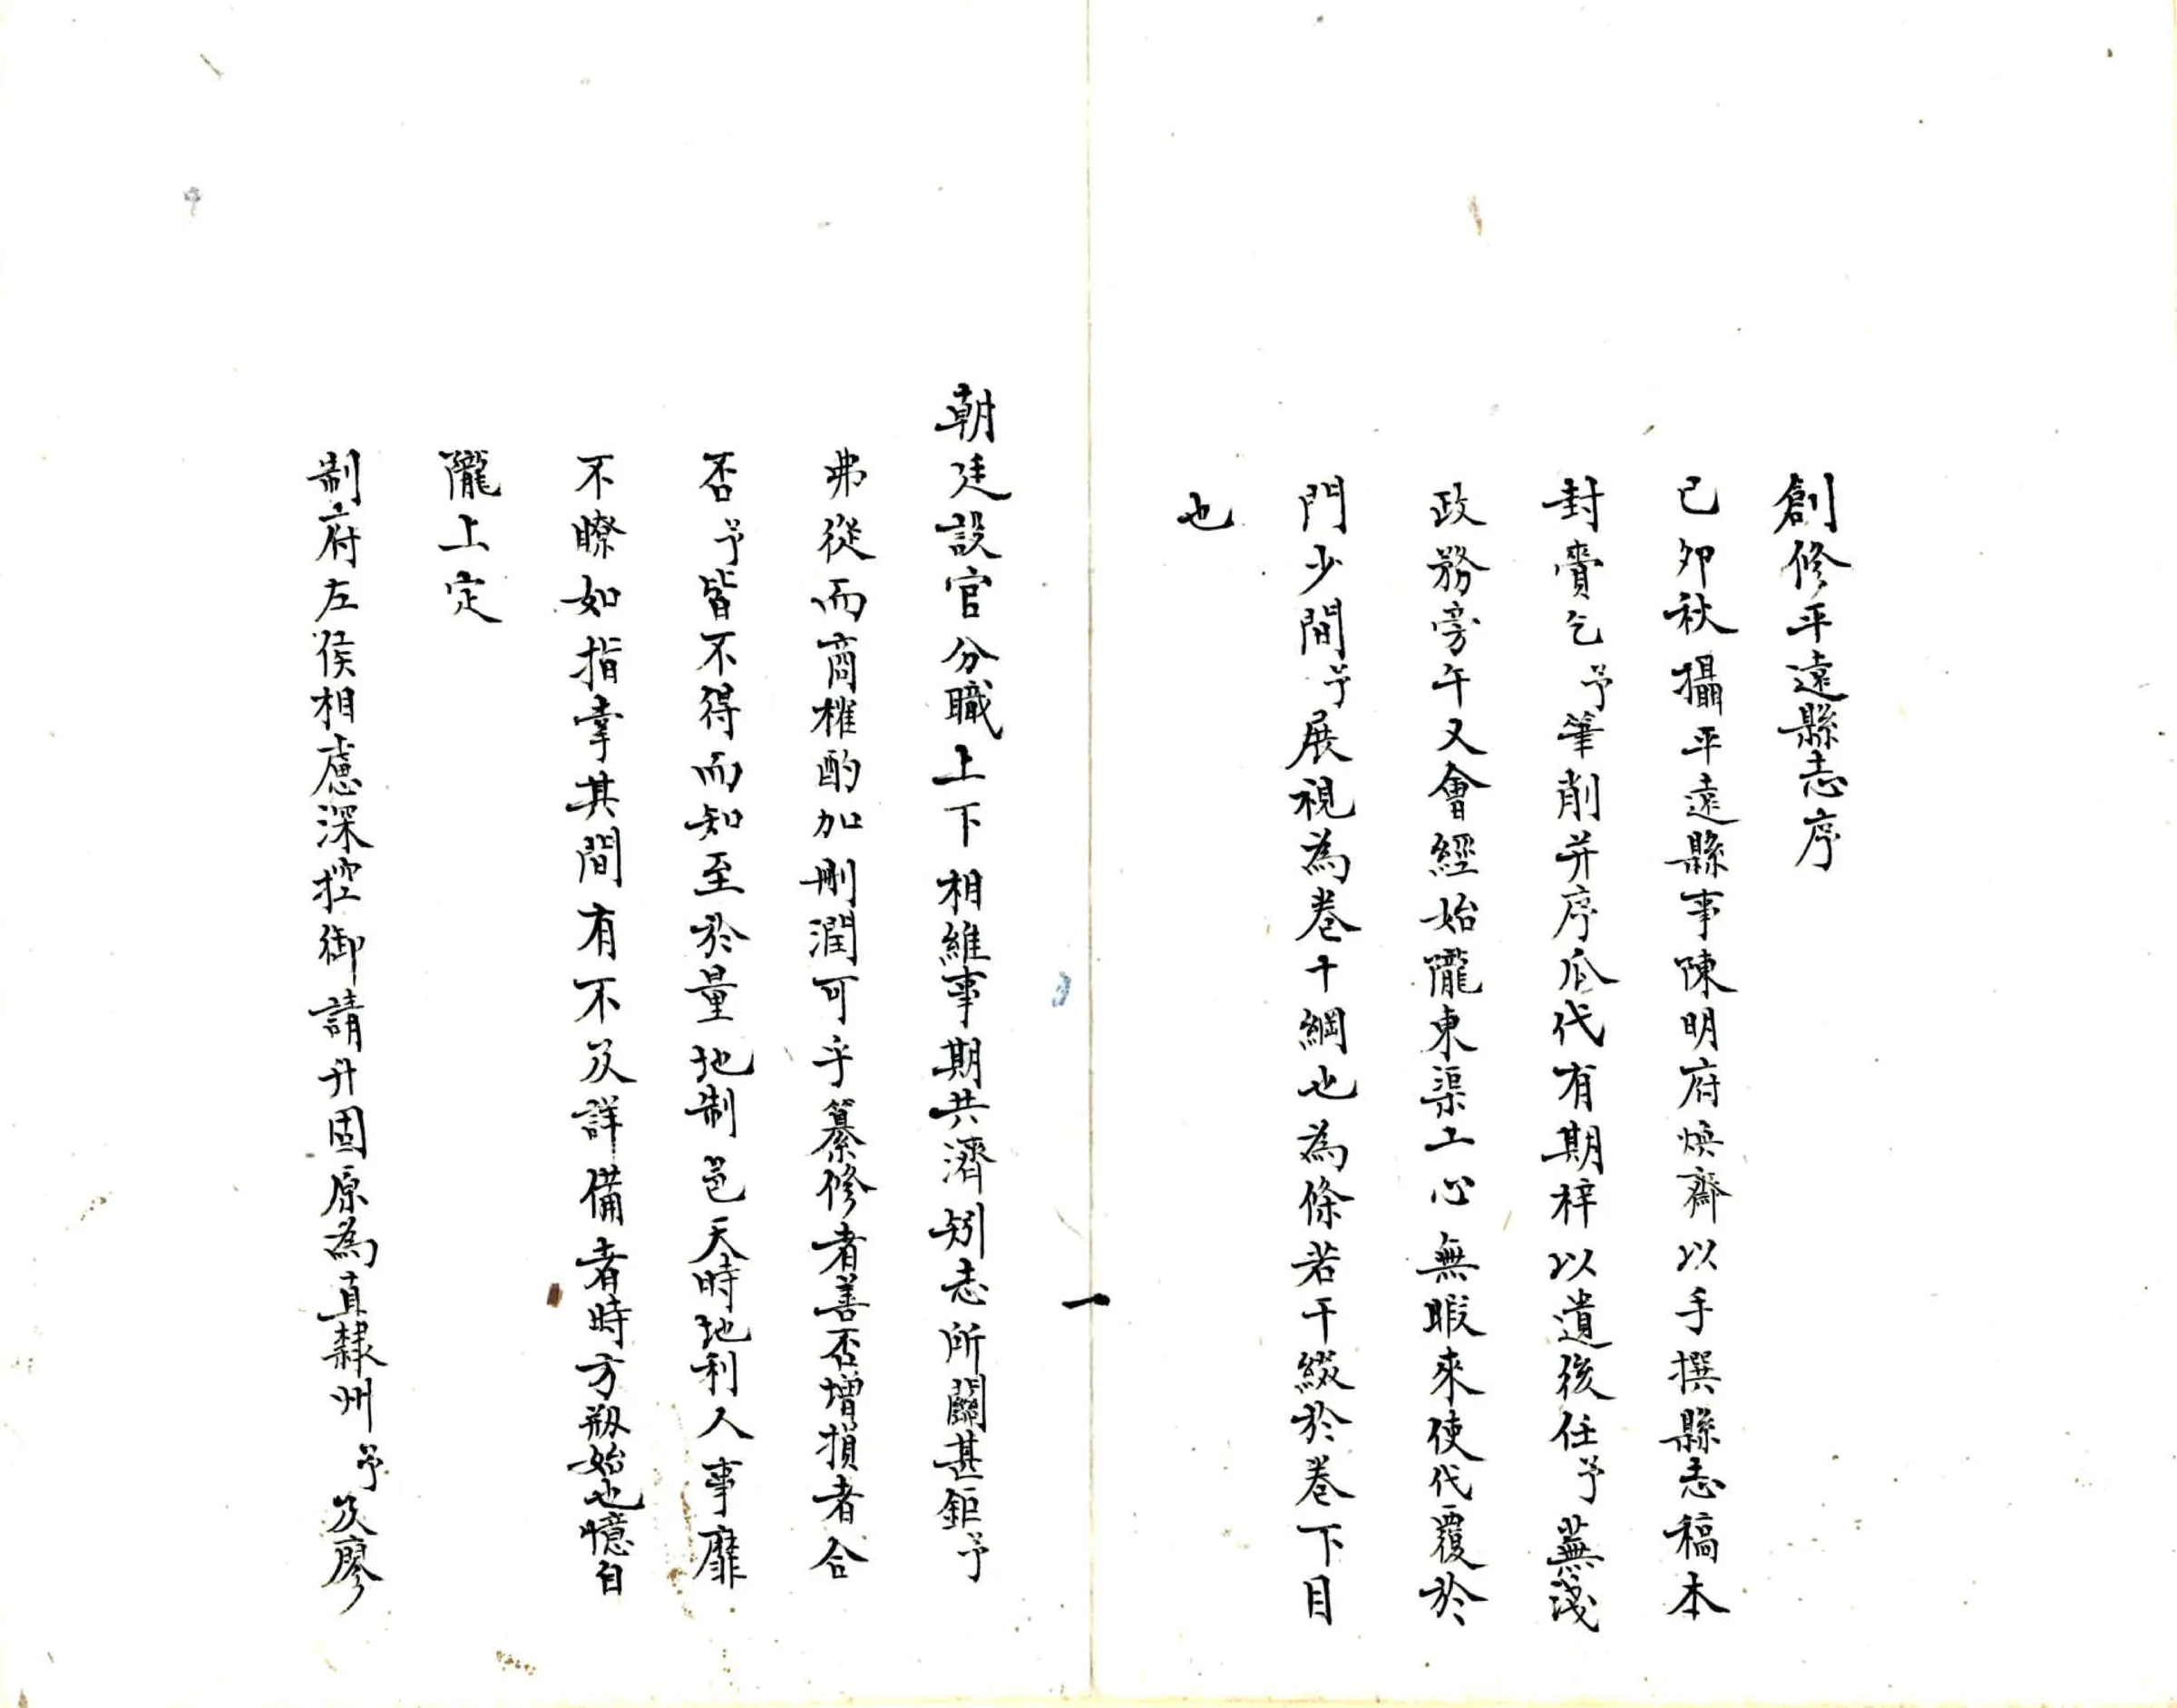 創修平遠縣志序
己夘秋攝平遠縣事陳明府煥齋以手撰縣志稿本
封賫乞予筆削并序瓜代有期梓以遺後任予蕪淺
政務旁午又會經始隴東渠工心無暇來使代覆於
門少間予展視為卷十綱也為條若干綴於卷下目
也
一
朝廷設官分職上下相維事期共濟矧志所關甚鉅予
弗從而商榷酌加刪潤可乎纂修者善否增損者合
否予皆不得而知至於量地制邑天時地利人事靡
不瞭如指掌其間有不及詳備者時方剏始也憶自
隴上定
制府左侯相慮深控御請升固原為直隸州予及廖